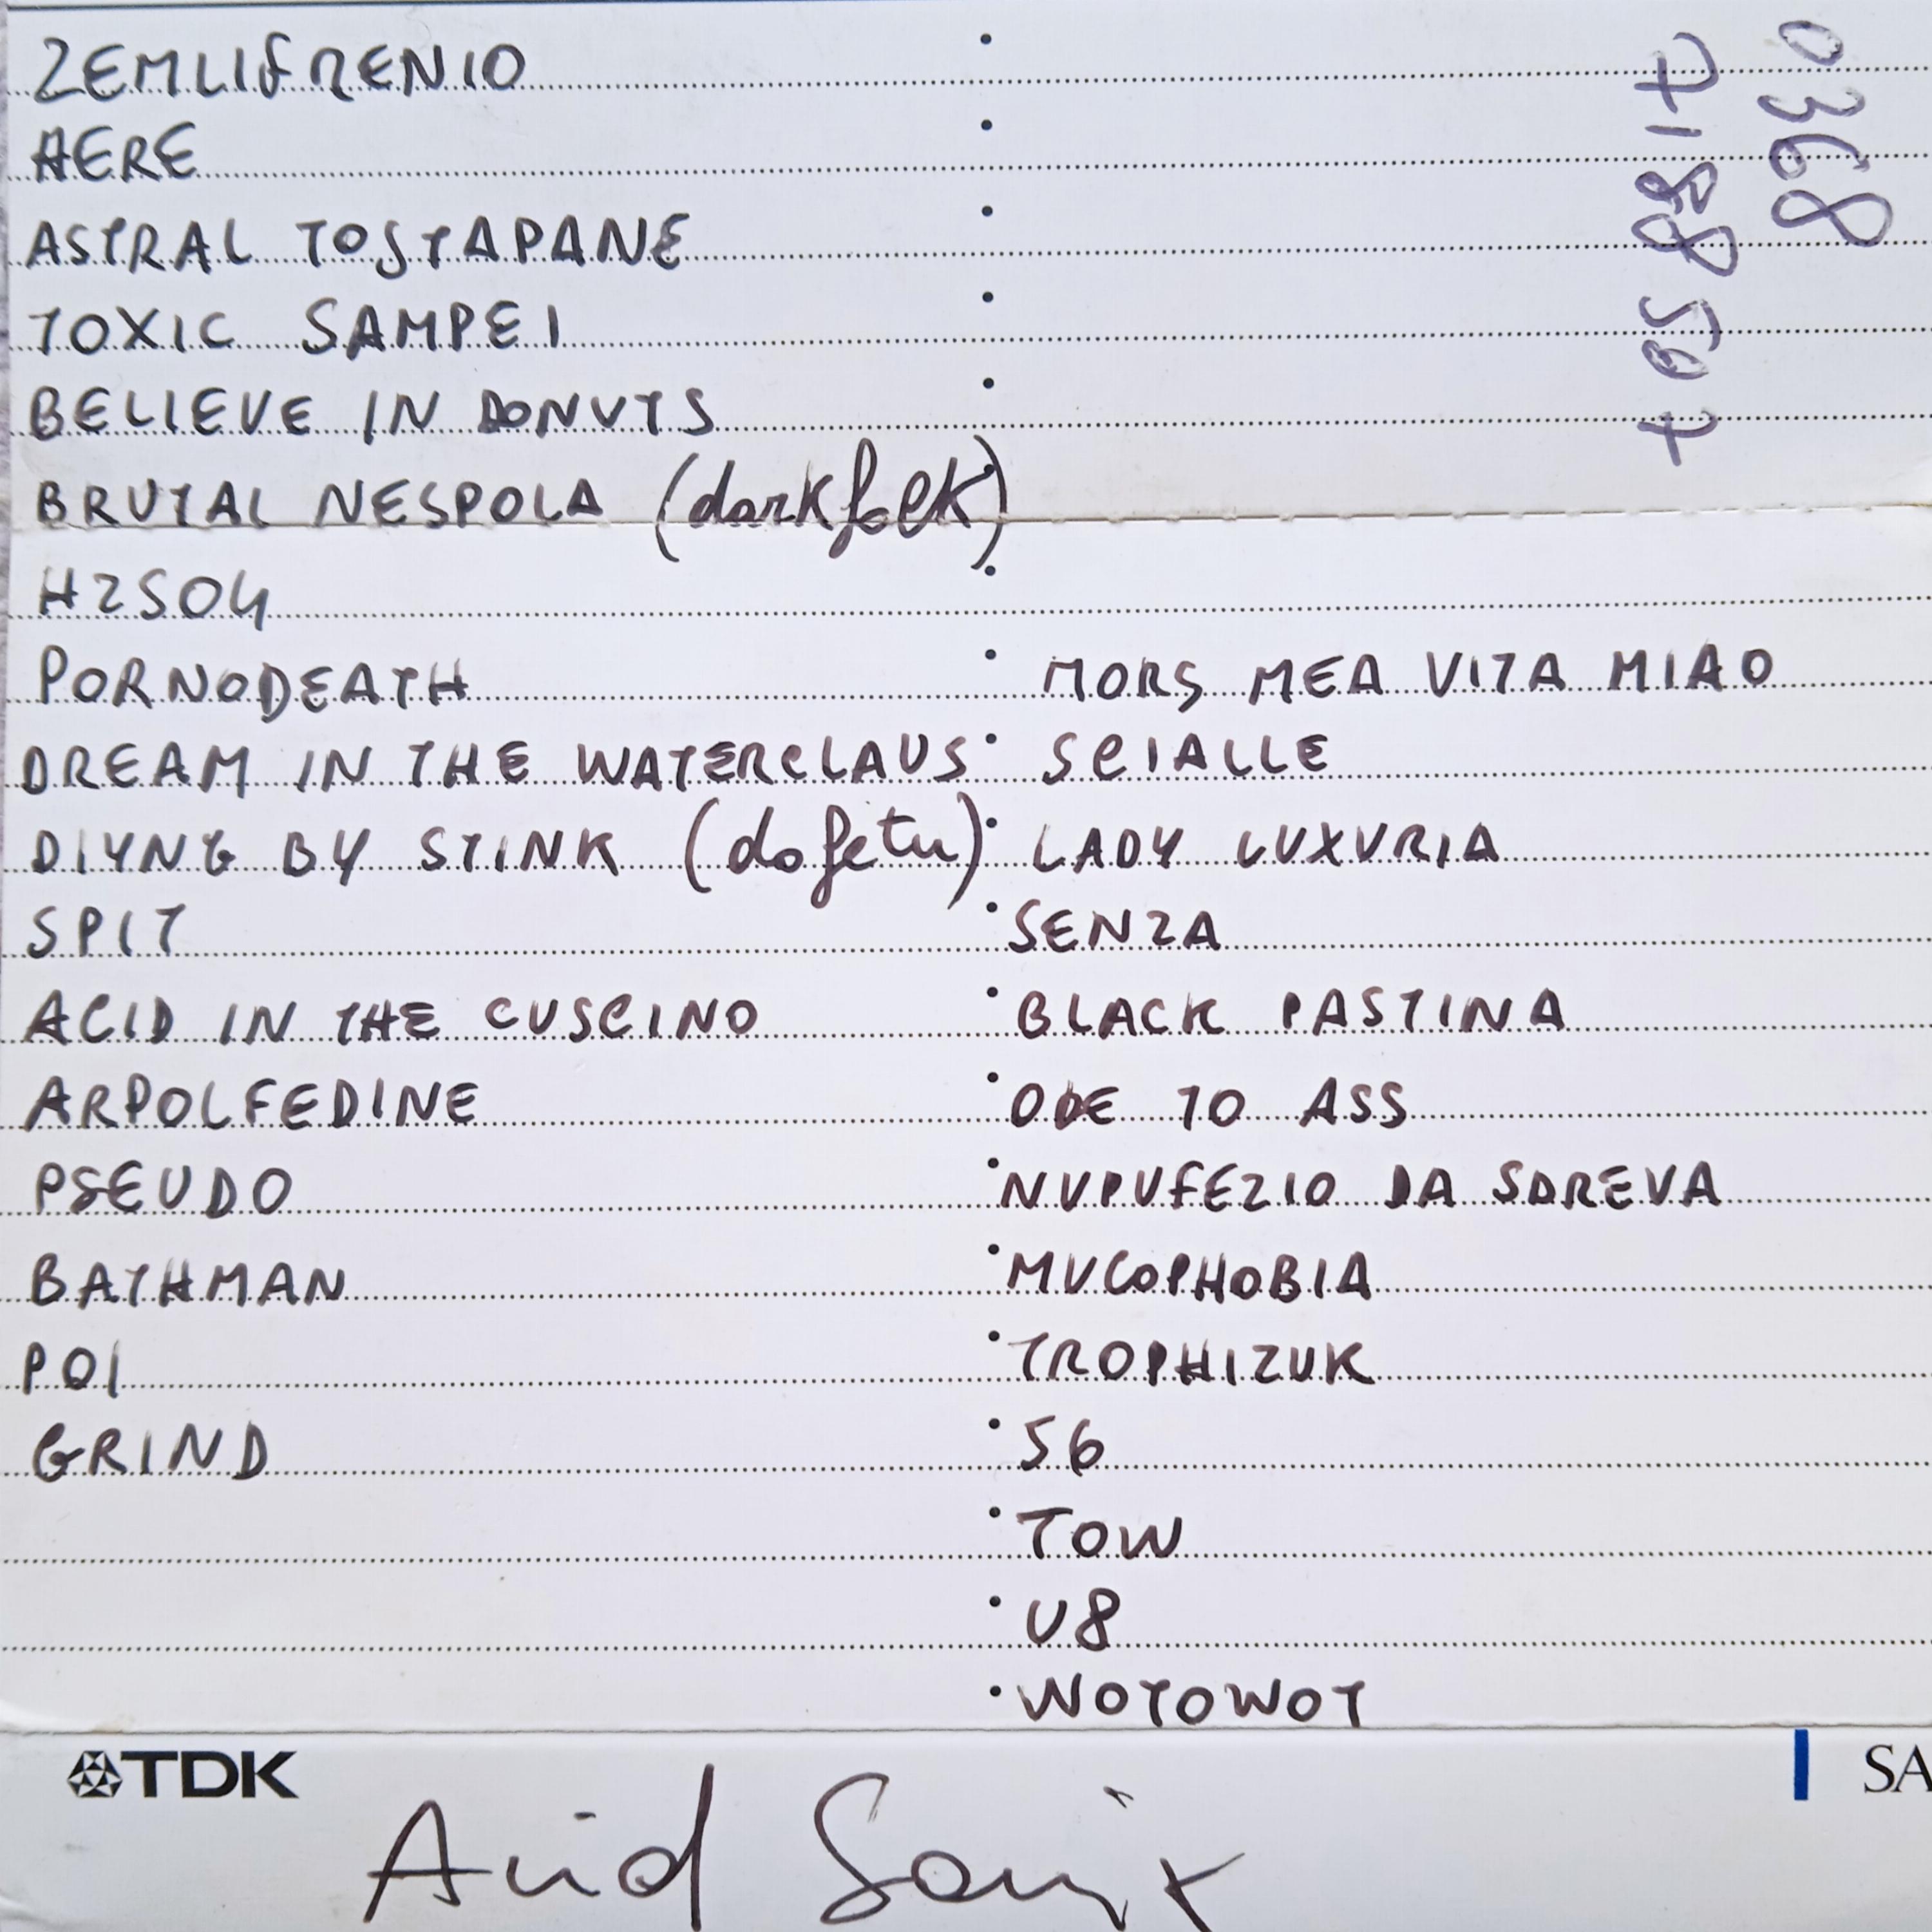 ZEMLIFRENIO
AERE
ASTRAL TOSTAPANE
TOXIC SAMPEI
BELIEVE IN DONUTS
BRUTAL NESPOLA (darkfolk)
H2SO4
PORNODEATH
DREAM IN THE WATERCLAUS
DIYNG BY STINK (do fetu)
SPIT
ACID IN THE CUSCINO
ARPOLFEDINE
PSEUDO
BATHMAN
POI
GRIND
MORS MEA VITA MIAO
SCIALLE
LADY LUXURIA
SENZA
BLACK PASTINA
ODE TO ASS
NUPUFEZIO DA SDREVA
MUCOPHOBIA
TROPHIZUK
56
TOW
U8
WOTOWOT
0368
7188507
TDK
SA
Acid Sonix